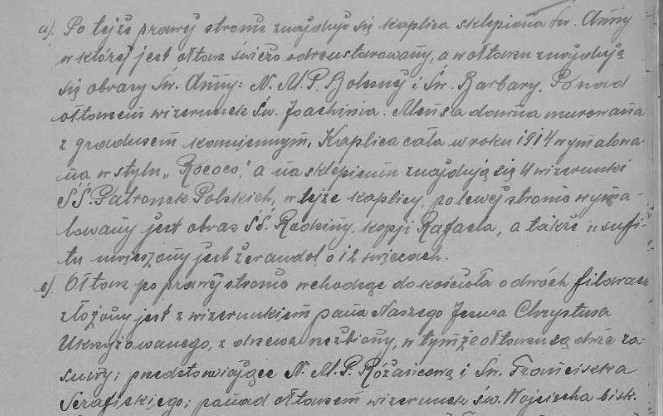 a). Po tejże prawej stronie znajduje się kaplica sklepiona Św. Anny
w której jest ołtarz świeżo odrestaurowany, a w ołtarzu znajdują
się obrazy Św. Anny: N. M. P. Bolesnej i Św. Barbary. Ponad
ołtarzem wizerunek Św. Joachima. Mensa dawna murowana
z gradusem kamiennym. Kaplica cała w roku 1914 wymalowa-
na w stylu „Rococo," a na sklepieniu znajdują się 4 wizerunki
ŚŚ. Patronek Polskich, w tejże kaplicy, po lewej stronie wyma-
lowany jest obraz Śś. Rodziny kopji Rafaela, a także u sufi-
tu umieszony jest żerandol o 12 świecach.
e). Ołtarz po prawej stronie wchodząc do kościoła o dwóch filarach
złożony jest z wizerunkiem pana Naszego Jezusa Chrystusa
Ukrzyżowanego, z drzewa rzeźbiony, w tymże ołtarzu są dwie za-
suwy: przedstawiające N. M. P. Różańcową i Św. Franciszka
Serafickiego; ponad ołtarzem wizerunek Św. Wojciecha bisk.